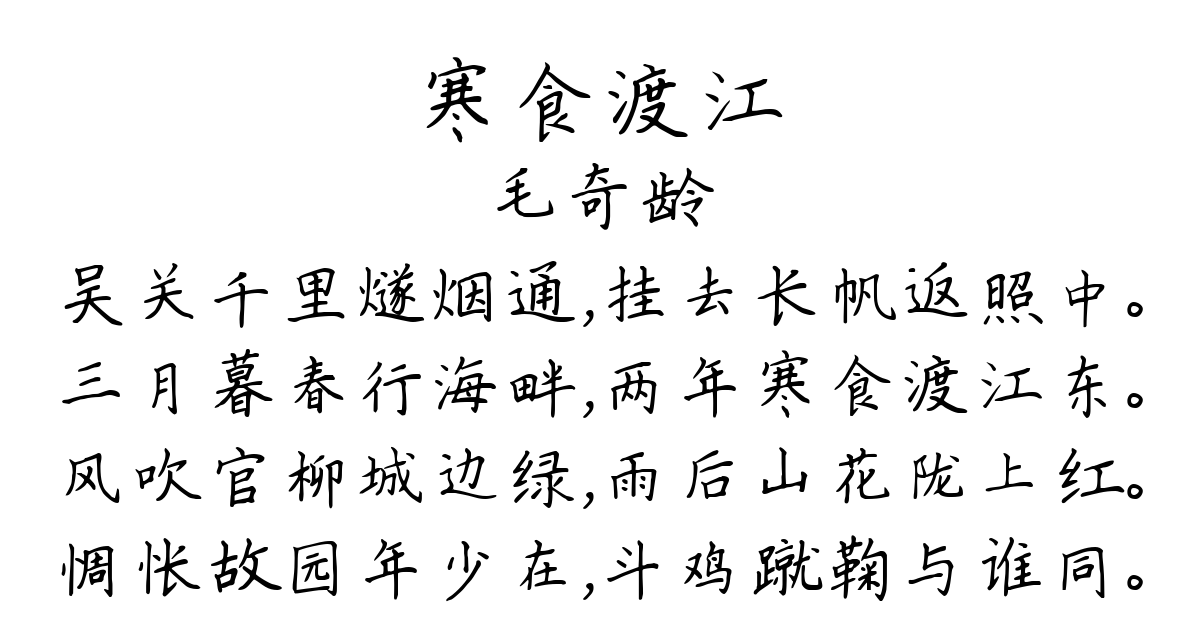 寒食渡江
毛奇龄
吴关千里燧烟通,挂去长帆返照中。
三月暮春行海畔,两年寒食渡江东。
风吹官柳城边绿,雨后山花陇上红。
惆怅故园年少在,斗鸡蹴鞠与谁同。